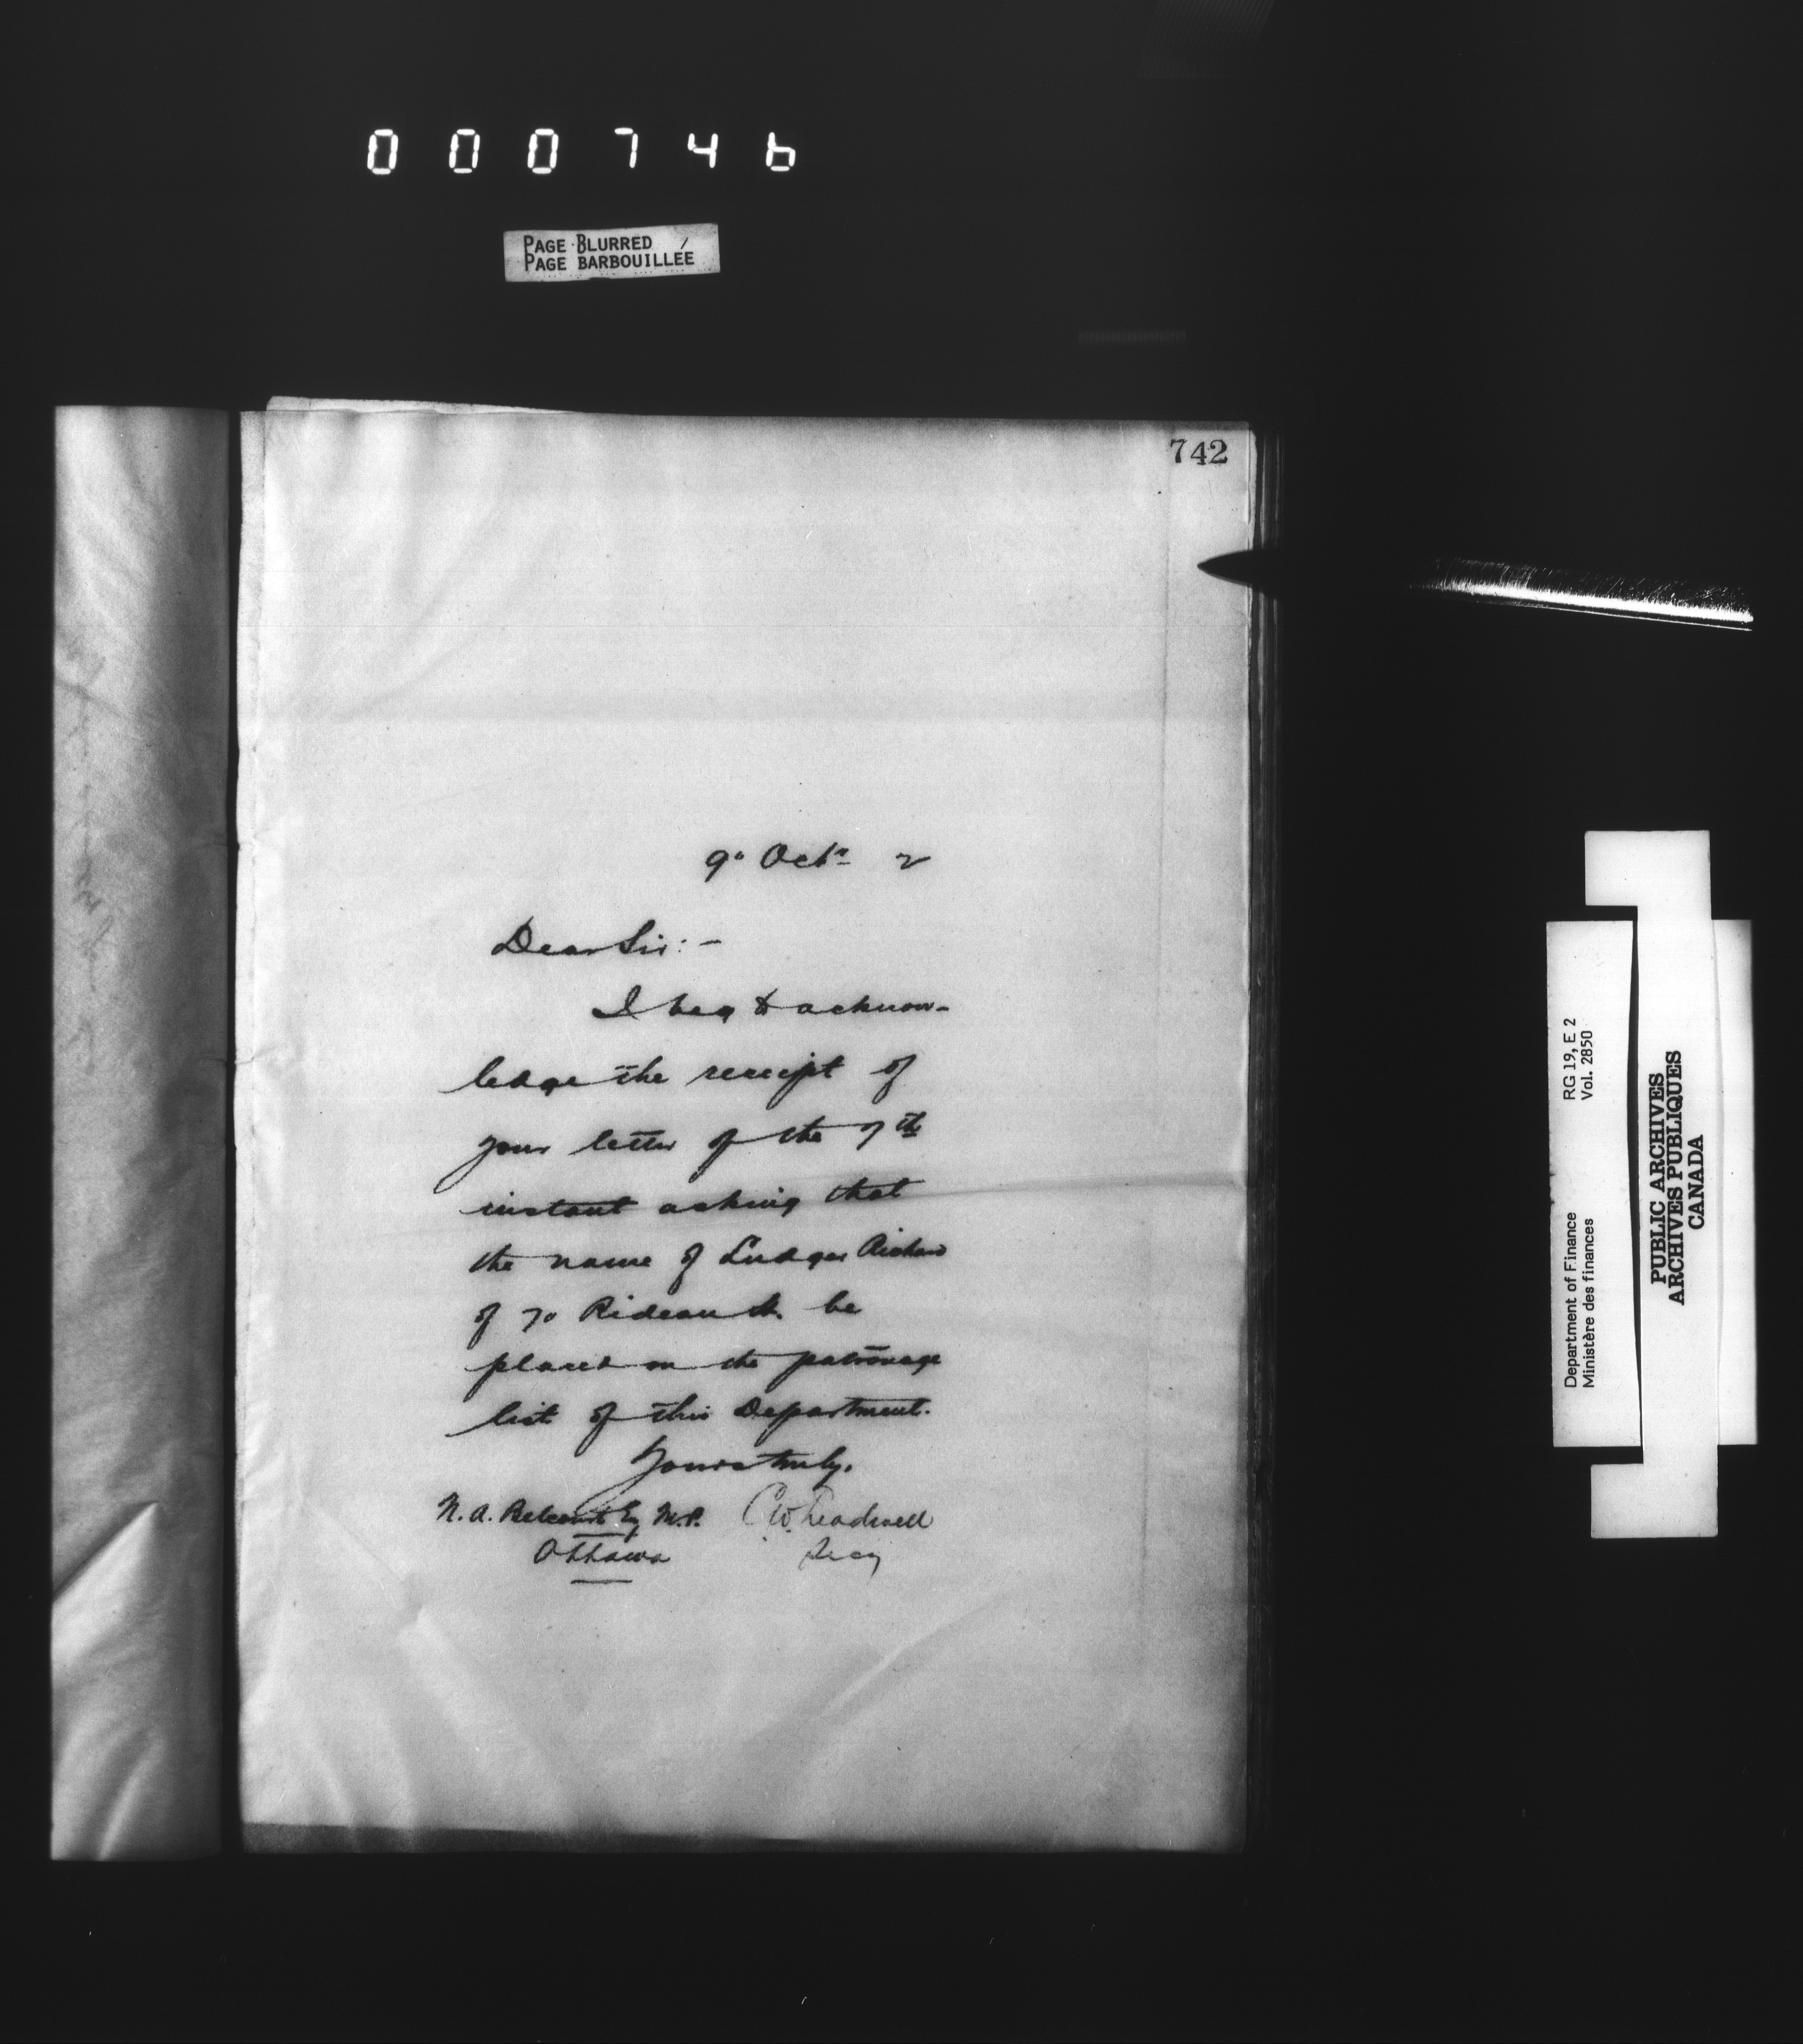 000746
PAGE BLURRED
PAGE BARBOUILLÉE
742
9" Oct" 2
Dear Sir:-
I beg to acknow-
ledge the receipt of
your letter of the 7th
instant asking that
the name of Ludger Richard
of 70 Rideau St. be
placed on the patronage
list of this Department.
Yours truly.
N. A. Belcourt Esq M.P.
Ottawa
C W. Treadwell
Secy
Department of Finance RG 19, E 2
Ministère des finances Vol. 2850
PUBLIC ARCHIVES
ARCHIVES PUBLIQUES
CANADA